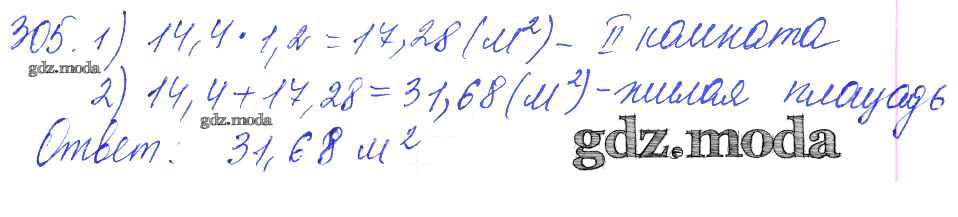 305. 1) 14,4 · 1,2 = 17,28 (м²) – II комната
gdz.moda
2) 14,4 + 17,28 = 31,68 (м²) – жилая площадь
gdz.moda
Ответ: 31,68 м²
gdz.moda